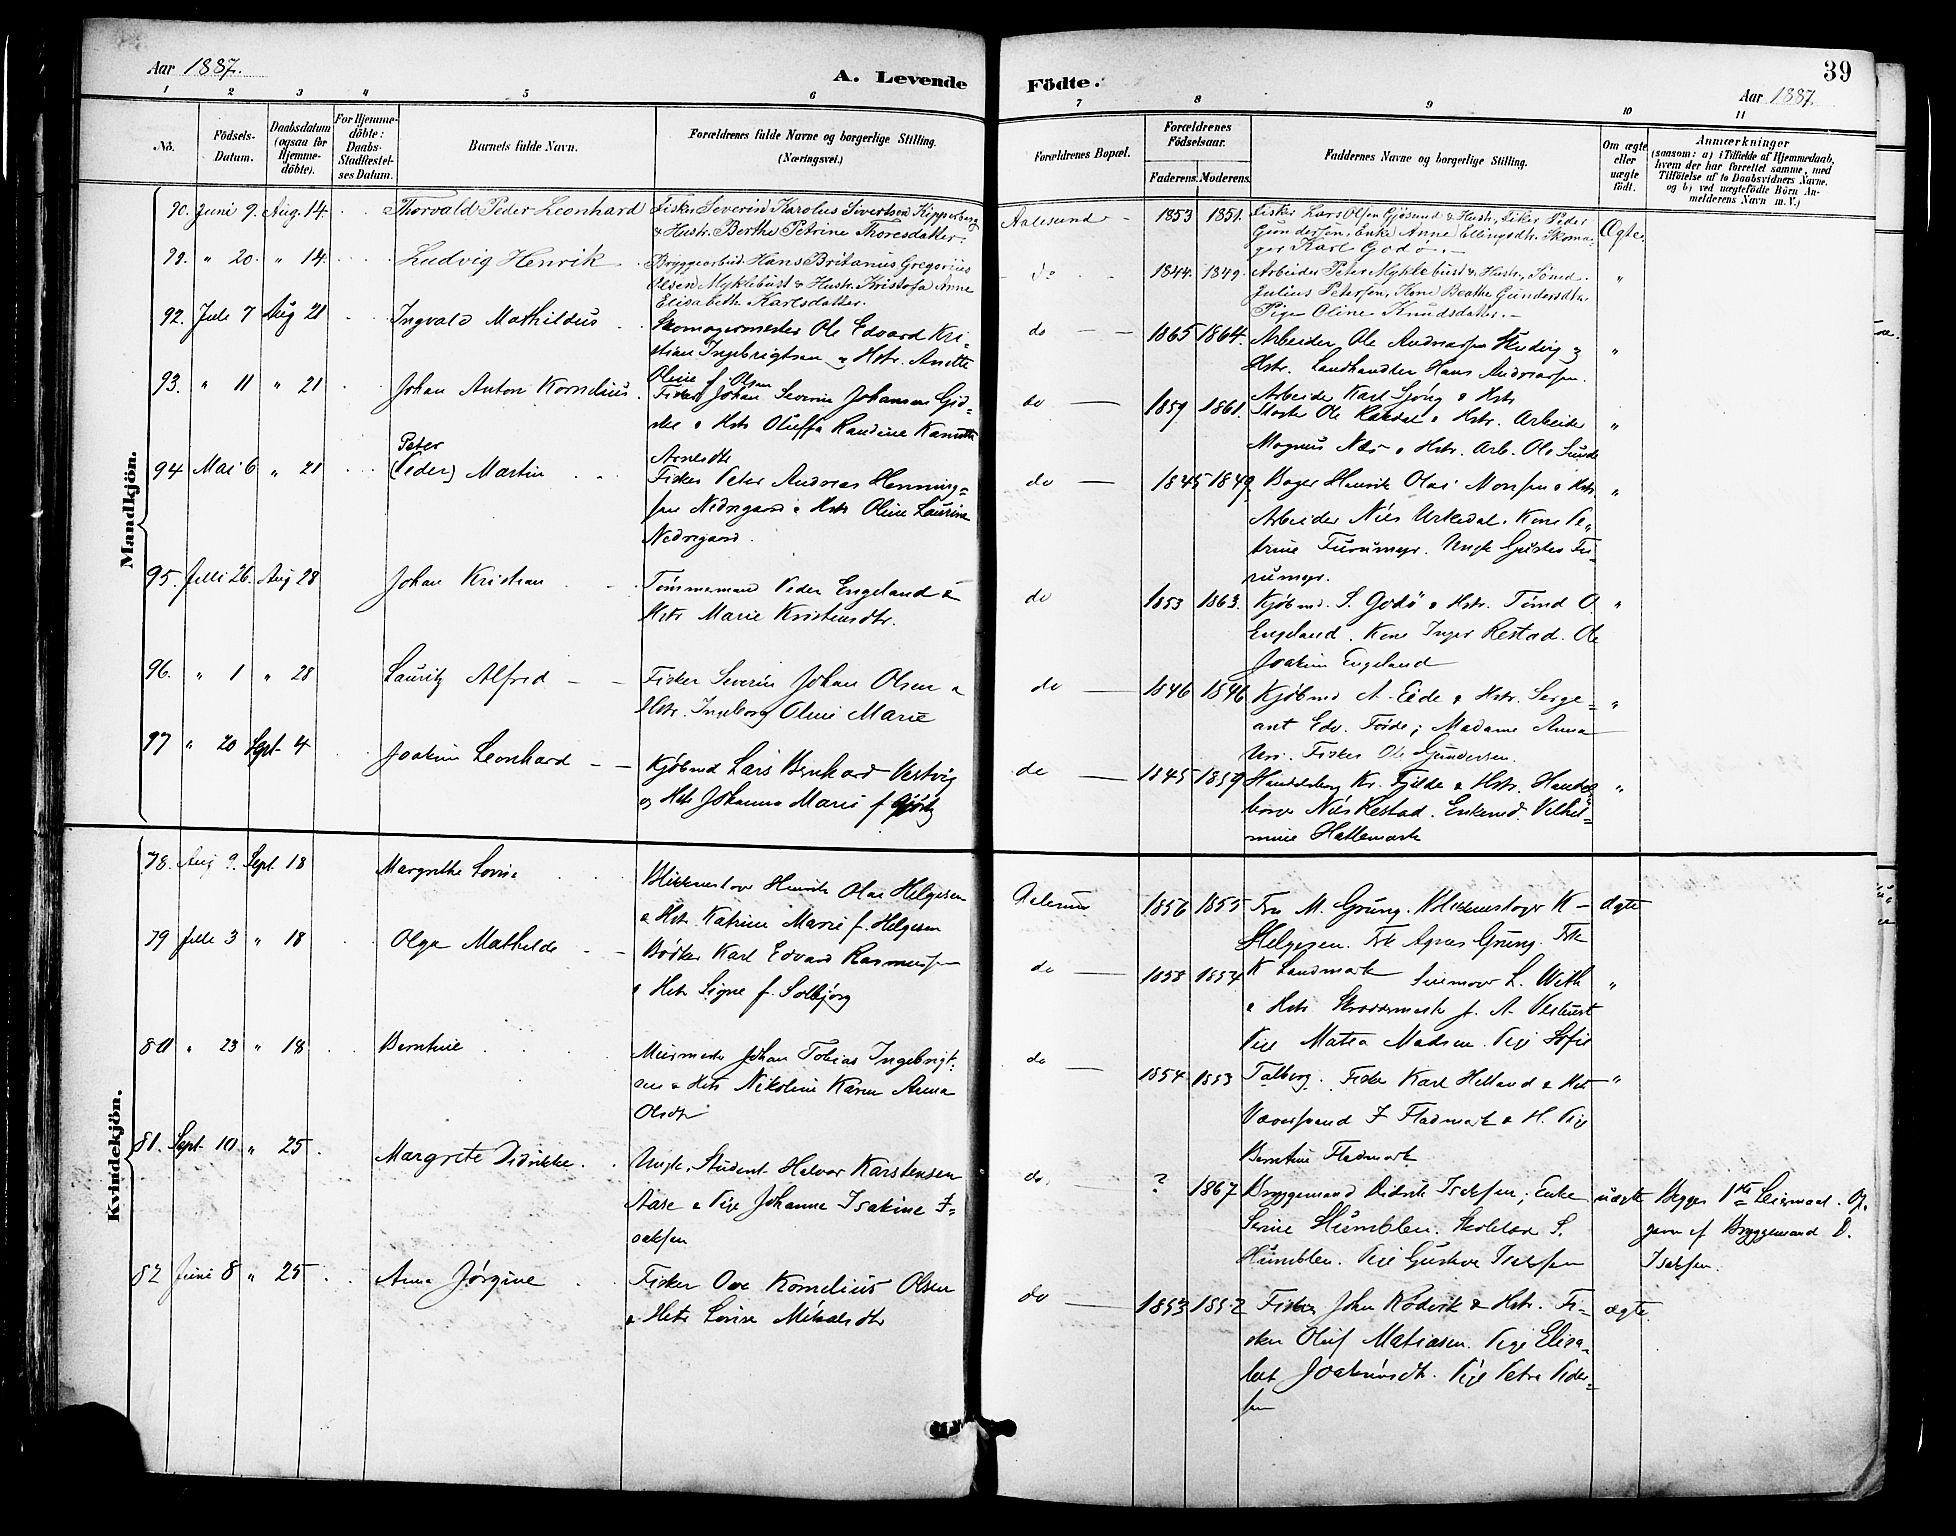 Aar 1887.
A. Levende
Födte.
39
Aar 1887.
1 2 3 4 5 6 7 8 9 10 11
No.
Födsels-Datum.
Daabsdatum (ogsaa for Hjemme-döbte).
For Hjemme-döbte: Daabs-Stadfæstel-ses Datum.
Barnets fulde Navn.
Forældrenes fulde Navne og borgerlige Stilling.
(Næringsvei.)
Forældrenes Bopæl.
Forældrenes Födselsaar.
Faderens. Moderens.
Faddernes Navne og borgerlige Stilling.
Om ægte eller uægte födt.
Anmærkninger
(saasom: a) i Tilfælde af Hjemmedaab, hvem der har forrettet samme, med Tilföielse af to Daabsvidners Navne, og b) ved uægtefödte Börn An-melderens Navn m. V.)
Mandkjön.
90. Juni 9. Aug. 14 Thorvald Peder Leonhard
Fisker Severin Karolus Sivertsen Kipperberg
& Hustr. Berthe Petrine Thoresdatter.
Aalesund 1853 1851.
Fisker Lars Olsen Gjøsund & Hustr., Fisker Peder
Gundersen, Enke Anne Ellingsdtr. Skoma-
ger Karl Godø.
Ægte.
91. " 20. " 14. Ludvig Henrik
Bryggearbeid. Hans Britanus Gregorius
Olsen Myklebust & Hustr. Kristofa Anne
Elisabeth Karlsdatter.
do 1844. 1849.
Arbeider Peter Myklebust & Hustr., Tømd.
Julius Petersen, Kone Beathe Gundersdtr.
Pige Oline Knudsdatter.
"
92. Juli 7 Aug 21 Ingvald Mathildus
Skomagermester Ole Edvard Kri-
stian Ingebrigtsen og Hstr. Anette
Oline f. Olsen
do 1865 1864.
Arbeider Ole Andreassen og
Hstr. Landhandler Hans Andreassen.
Arbeider Karl & Hstr
"
93. " 11 " 21 Johan Anton Kornelius.
Fisker Johan Severin Johansen Gid-
ske & Hstr Oluffa Randine
Arnesdtr
do 1859 1861.
Ole & Hstr. Arbeider
Magnus & Hstr. Arb. Ole Sunde
"
94 Mai 6 " 21 Peter
(Peder) Martin
Fisker Peter Andreas Henning-
sen Nedregaard & Hstr Oline Laurine
Nedregaard.
do 1845 1849.
Bager Henrik Olai Monsen & Hstr
Arbeider Nils Urkedal. Kone Pe-
trine Furumyr. Ungk Gustav Fu-
rumyr.
"
95. Juli 26. Aug 28 Johan Kristian
Tømmermand Peder Engeland &
Hstr Marie Kristensdtr.
do 1853 1863.
Kjøbmd. S. Godø & Hstr. Tømd O.
Engeland. Kone Inger Restad. Ole
Joakim Engeland
"
96. " 1 " 28 Lauritz Alfred
Fisker Severin Johan Olsen &
Hstr. Ingeborg Oline Marie
do 1846 1846
Kjøbmd A. Eide & Hstr. Serge-
ant Edv. Førde; Madame Anna
Fisker Ole Gundersen.
"
97 " 20 Sept. 4 Joakim Leonhard
Kjøbmd Lars Bernhard Vestvig
og Hstr Johanna Marie f.
do 1845 1859
Handelsborg Kr. Fjelde & Hstr. Handels
borge Nils Restad. Enkemd. Vilhel-
mine Hattemark
"
Kvindekjön.
78. Aug 9. Sept. 18 Margrethe Lovise
Blikkenslager Henrik Olai Helgesen
& Hstr. Katrine Marie f. Helgesen
Aalesund 1856 1855
Fru M. Grung. Blikkenslager K
Helgesen. Frk Agnes Grung. Frk
K Landmark
ægte
79 Juli 3 " 18 Olga Mathilde
Bødker Karl Edvard Rasmussen
& Hstr Signe f. Solbjørg
do 1858 1854
L. With
& Hstr. f. A.
Pige Matea Madsen. Pige Sofie
Talberg.
"
80 " 23 " 18 Berntine
Murmester Johan Tobias Ingebrigt-
sen & Hstr Nikoline Karen Anna
Olsdtr
do 1854 1853
Fisker Karl Helland & Hstr
Fladmark & H. Pige
Berntine Fladmark
"
81. Sept. 10 " 25 Margrete Didrikke
Ungk. Student Halvor Karstensen
Aase & Pige Johanne Isakine I-
saksen
do, ? 1867
Bryggemand Didrik Isaksen; Enke
Serine Humblen. S.
Humblen. Pige Gustava Isaksen
uægte
Begges 1ste Leiermaal. Op-
given af Bryggemand D.
Isaksen.
82 Juni 8 " 25 Anna Jørgine
Fisker Ove Kornelius Olsen
& Hstr Lovise Mikalsdtr
do 1853 1852
Fisker John Rødvik & Hstr. Fi-
sker Oluf Matiasen. Pige Elisa-
bet Joakimsdtr. Pige Petra Peder-
sen
ægte